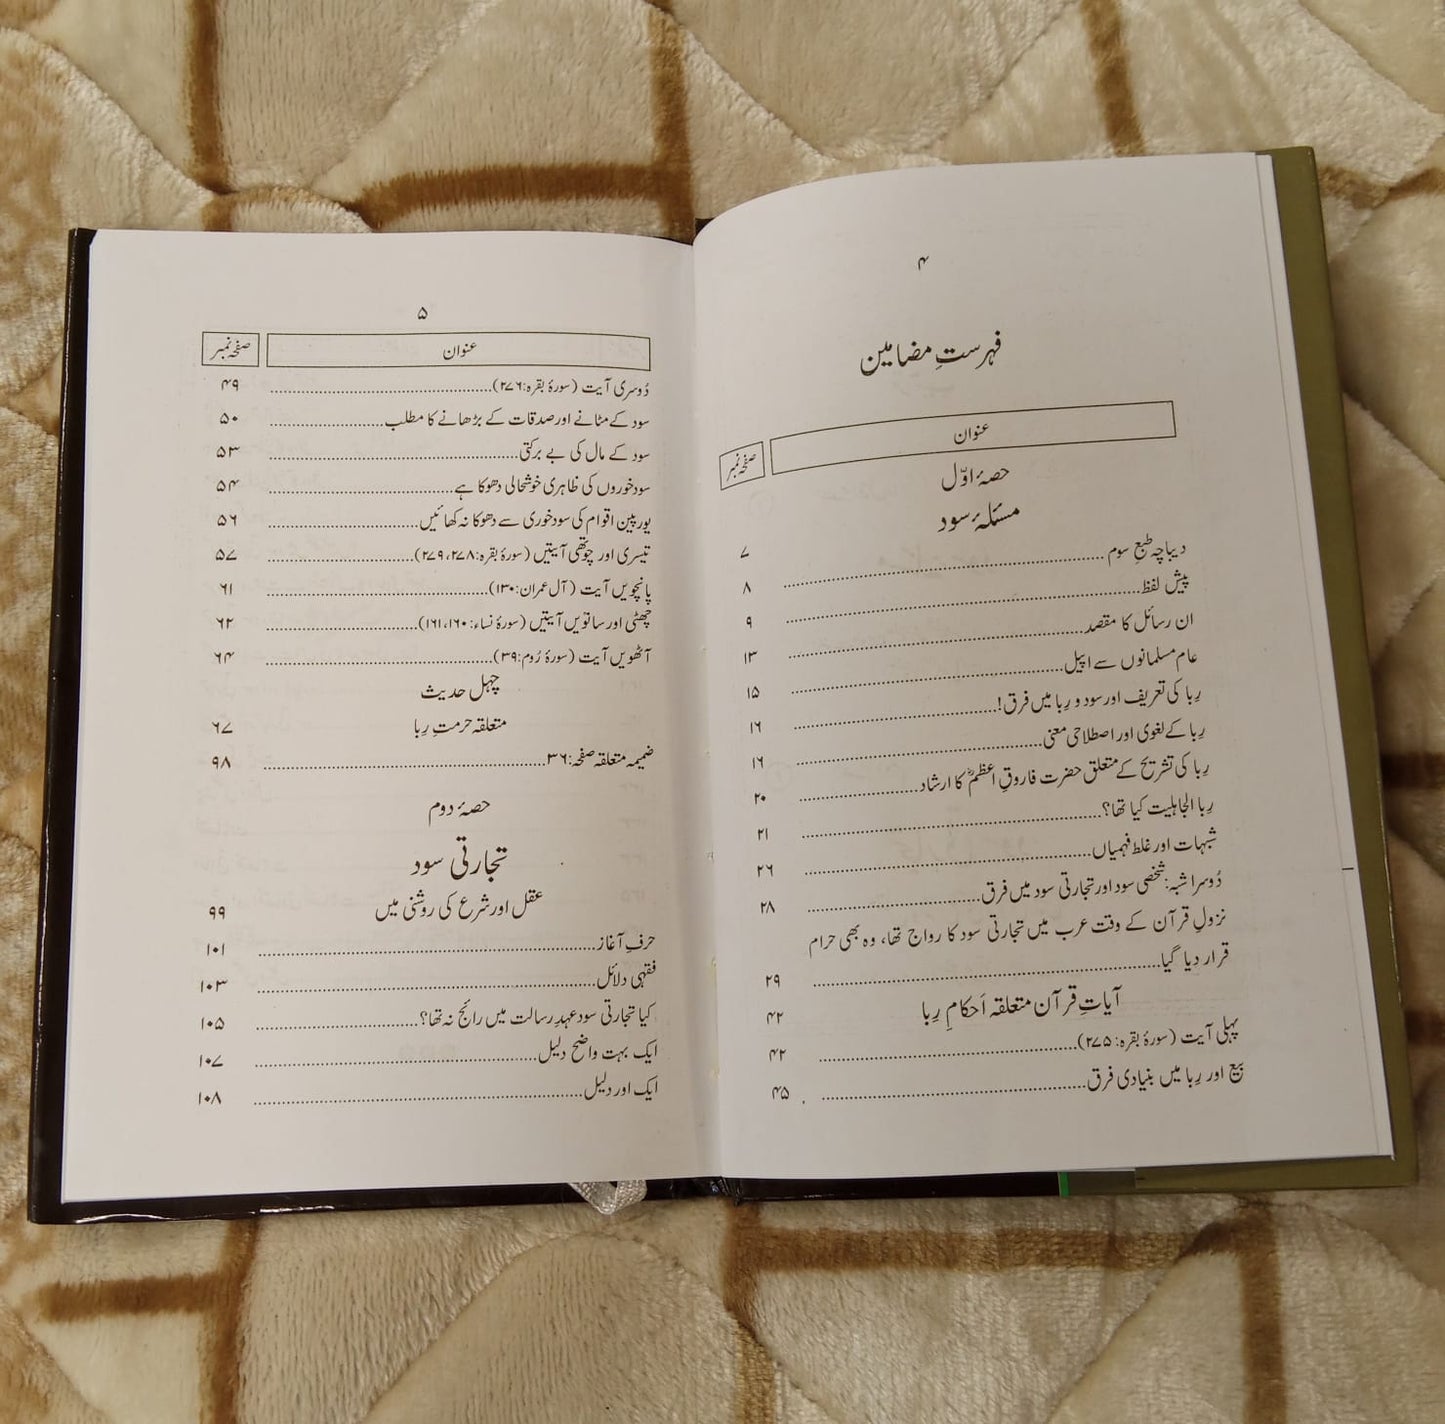 ۴
فہرستِ مضامین
عنوان
صفحہ نمبر
حصۂ اوّل
مسئلۂ سود
دیباچہ طبعِ سوم ........ ۷
پیش لفظ ........ ۸
ان رسائل کا مقصد ........ ۹
عام مسلمانوں سے اپیل ........ ۱۳
رِبا کی تعریف اور سود و رِبا میں فرق! ........ ۱۵
رِبا کے لغوی اور اصطلاحی معنی ........ ۱۶
رِبا کی تشریح کے متعلق حضرت فاروقِ اعظمؓ کا ارشاد ........ ۱۶
رِبا الجاہلیت کیا تھا؟ ........ ۲۰
شبہات اور غلط فہمیاں ........ ۲۱
دُوسرا شبہ: شخصی سود اور تجارتی سود میں فرق ........ ۲۶
نزولِ قرآن کے وقت عرب میں تجارتی سود کا رواج تھا، وہ بھی حرام ۲۸
قرار دیا گیا ........ ۲۹
آیاتِ قرآن متعلقہ اَحکامِ رِبا ۴۲
پہلی آیت (سورۂ بقرہ:۲۷۵) ........ ۴۲
بیع اور رِبا میں بنیادی فرق ........ ۴۵
۵
عنوان صفحہ نمبر
دُوسری آیت (سورۂ بقرہ:۲۷۶) ........ ۴۹
سود کے مٹانے اور صدقات کے بڑھانے کا مطلب ........ ۵۰
سود کے مال کی بے برکتی ........ ۵۳
سود خوروں کی ظاہری خوشحالی دھوکا ہے ........ ۵۴
یورپین اقوام کی سود خوری سے دھوکا نہ کھائیں ........ ۵۶
تیسری اور چوتھی آیتیں (سورۂ بقرہ:۲۷۸، ۲۷۹) ........ ۵۷
پانچویں آیت (آل عمران:۱۳۰) ........ ۶۱
چھٹی اور ساتویں آیتیں (سورۂ نساء:۱۶۰، ۱۶۱) ........ ۶۲
آٹھویں آیت (سورۂ رُوم:۳۹) ........ ۶۴
چہل حدیث
متعلقہ حرمتِ رِبا ۶۷
ضمیمہ متعلقہ صفحہ:۳۶ ........ ۹۸
حصۂ دوم
تجارتی سود
عقل اور شرع کی روشنی میں ۹۹
حرفِ آغاز ........ ۱۰۱
فقہی دلائل ........ ۱۰۳
کیا تجارتی سود عہدِ رسالت میں رائج نہ تھا؟ ........ ۱۰۵
ایک بہت واضح دلیل ........ ۱۰۷
ایک اور دلیل ........ ۱۰۸